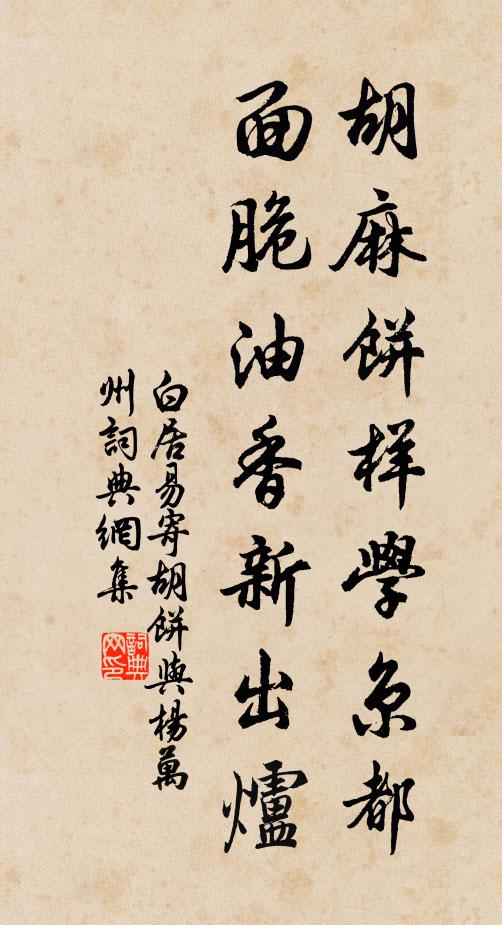 胡麻餅样學京都
面脆油香新出爐
白居易寄胡餅與楊萬
州詞典網集
詞典
网印